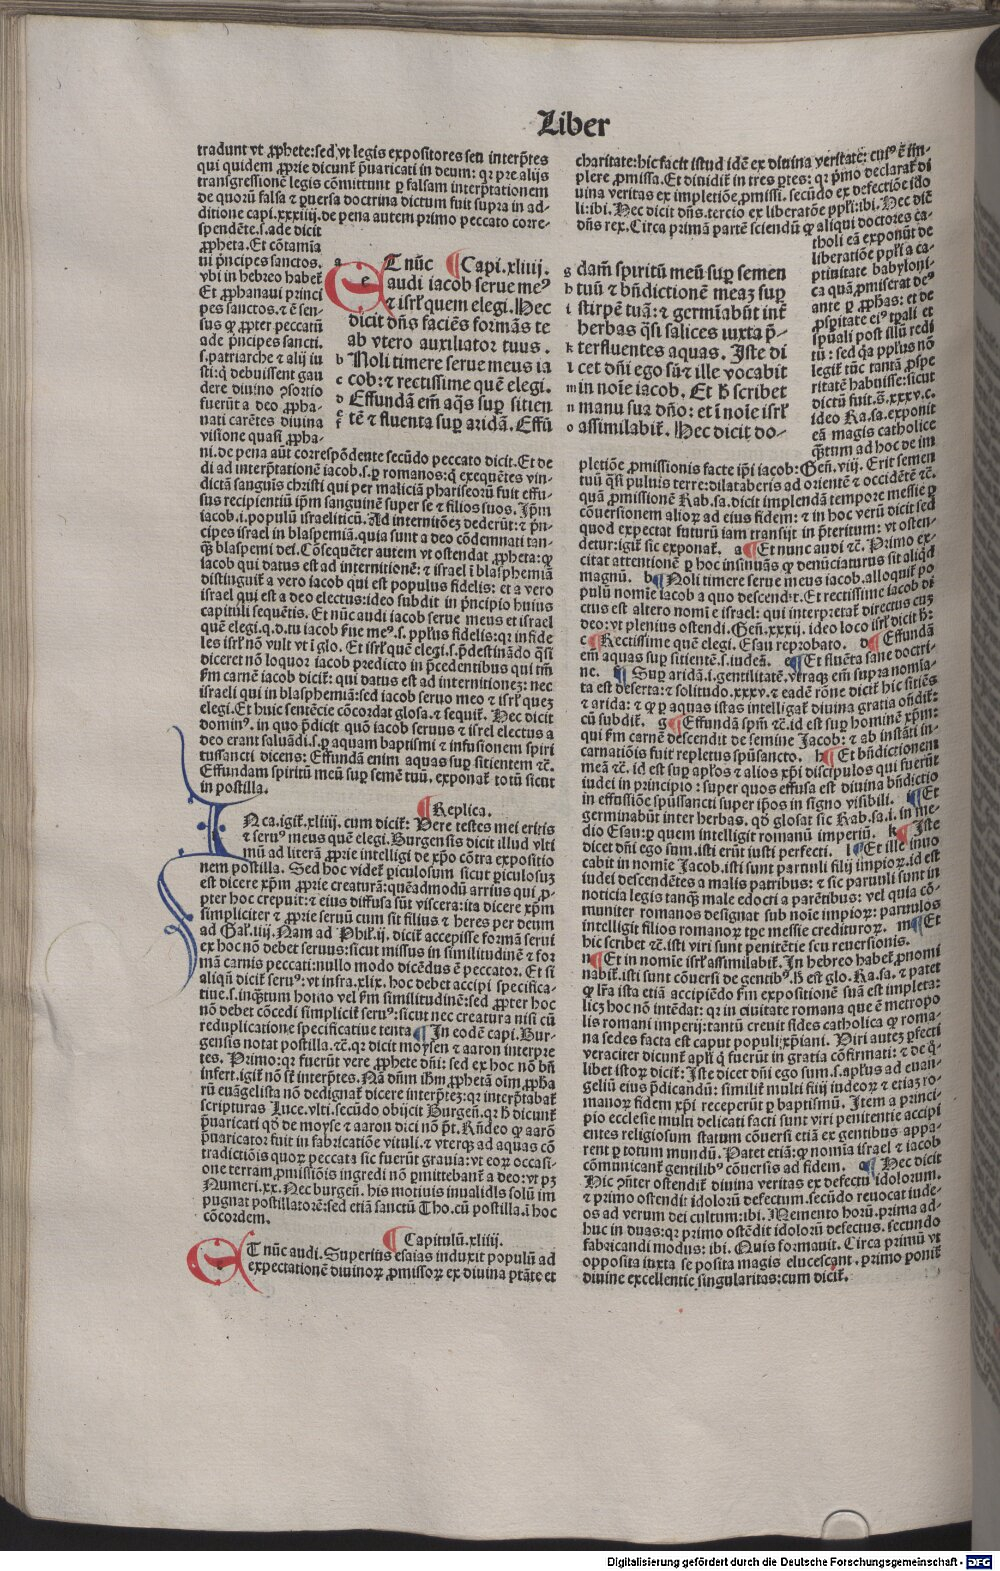 Liber
tradunt vt ꝓphete:sed vt legis expositores seu interp̃tes
qui quidem ꝓprie dicunt̃ p̃uaricati in deum: qr pre alijs
transgressionẽ legis cõmittunt ꝑ falsam interp̃tationem
de quorũ falsa ⁊ ꝑuersa doctrina dictum fuit supra in ad-
ditione capi.xxxiiij.de pena autem primo peccato corre-
spendẽte.s.ade dicit
ꝓpheta.Et cõtamĩa
ui p̃ncipes sanctos.
vbi in hebreo habet̃
Et ꝓphanaui princi
pes sanctos.⁊ ẽ sen-
sus ꝙ ꝓpter peccatũ
ade p̃ncipes sancti.
s.patriarche ⁊ alij iu
sti:q̃ debuissent gau
dere diuino ꝯsortio
fuerũt a deo ꝓpha-
nati carẽtes diuina
visione quasi ꝓpha-
ni.de pena aut correspõdente secũdo peccato dicit.Et de
di ad interp̃tationẽ iacob.s.ꝑ romanos:q̃ exequẽtes vin-
dictã sanguis christi qui per maliciã phariseorũ fuit effu-
sus recipientiũ ip̃m sanguinẽ super se ⁊ filios suos. Ip̃m
iacob.i.populũ israeliticũ. Ad internitõez dederũt: ⁊ p̃n-
cipes israel in blasphemiã.quia sunt a deo cõdemnati tan-
q̃ blaspemi dei. Cõseq̃uẽter autem vt ostendat ꝓpheta:ꝙ
iacob qui datus est ad internitionẽ: ⁊ israel ĩ blasphemiã
distinguit̃ a vero iacob qui est populus fidelis: et a vero
israel qui est a deo electus:ideo subdit in p̃ncipio huius
capituli sequẽtis. Et nũc audi iacob serue meus et israel
quẽ elegi.q.d.tu iacob s̃ue meꝰ.s. pplũs fidelis:qr infide
les isrł nõ vult vt ĩ glo. Et isrł quẽ elegi.s.p̃destinãdo q̃si
diceret nõ loquor iacob predicto in p̃cedentibus qui tm̃
ẽm carnẽ iacob dicit̃: qui datus est ad internitionez: nec
israeli qui in blasphemiã:sed iacob seruo meo ⁊ isrł quez
elegi.Et huic sentẽcie cõcordat glosa.⁊ sequit̃. Hec dicit
dominꝰ. in quo p̃dicit quõ iacob seruus ⁊ isrel electus a
deo erant saluãdi.s.ꝑ aquam baptismi ⁊ infusionem spiri
tussancti dicens: Effundã enim aquas sup sitientem ⁊c̃.
Effundam spiritũ meũ sup semẽ tuũ. exponat̃ totũ sicut
in postilla.
Replica.
IN ca.igit̃.xliiij. cum dicit̃: Vere testes mei eritis
⁊ seruꝰ meus quẽ elegi. Burgensis dicit illud vlti
mũ ad literã ꝓprie intelligi de xp̃o cõtra expositio
nem postilla. Sed hoc videt̃ ꝑiculosum sicut ꝑiculosuz
est dicere xp̃m ꝓprie creaturã:quẽadmodũ arrius qui ꝓ-
pter hoc crepuit: ⁊ eius diffusa sũt viscera:ita dicere xp̃m
simpliciter ⁊ ꝓprie seruũ cum sit filius ⁊ heres per deum
ad Gal̃.iiij. Nam ad Phil̃.ij. dicit̃ accepisse formã serui
ex hoc nõ debet seruus:sicut missus in similitudinẽ ⁊ for-
mã carnis peccati:nullo modo dicẽdus ẽ peccator. Et si
aliqñ dicit̃ seruꝰ:vt infra.xlix. hoc debet accipi specifica-
tiue.s.inq̃tum homo vel s̃m similitudinẽ:sed ꝓpter hoc
nõ debet cõcedi simplicit̃ seruꝰ:sicut nec creatura nisi cũ
reduplicatione specificatiue tenta In eodẽ capi. Bur-
gensis notat postilla.⁊c̃.qr dicit moysen ⁊ aaron interpre
tes. Primo:qr fuerũt vere ꝓphete dñi: sed ex hoc nõ bñ
infert.igit̃ nõ st̃ interp̃tes. Nã dñm ihm̃ ꝓphetã oĩm ꝓpha
rũ euãgelista nõ dedignat̃ dicere interp̃tez:qr interp̃tabat̃
scripturas Luce.vlti.secũdo obijcit Burgeñ.qr hᷣ dicunt̃
p̃uaricati qd̃ de moyse ⁊ aaron dici nõ p̃t. Rñdeo ꝙ aarõ
p̃uaricatoꝛ fuit in fabricatiõe vituli.⁊ vterqꝫ ad aquas cõ
tradictiõis quoꝝ peccata sic fuerũt grauia:vt eoꝝ occasi-
one terram ꝓmissiõis ingredi nõ ꝑmittebant̃ a deo:vt pꝫ
Numeri.xx. Nec burgeñ. his motiuis inualidis solũ im
pugnat postillatorẽ:sed etiã sanctũ Tho.cũ postilla.ĩ hoc
cõcordem.
Capitulũ.xliiij.
ET nũc audi. Superius esaias induxit populũ ad
expectationẽ diuinoꝝ ꝓmissoꝝ ex diuina ptãte et
a ET nũc Capi.xliiij.
audi iacob serue meꝰ
⁊ isrł quem elegi. Hec
dicit dñs faciẽs formãs te
ab vtero auxiliator tuus.
b Noli timere serue meus ia
c cob:⁊ rectissime quẽ elegi.
d Effundã em̃ aq̃s sup sitien
e
f tẽ ⁊ fluenta sup aridã. Effũ
g dam̃ spiritũ meũ sup semen
h tuũ ⁊ bñdictionẽ meaz sup
i stirpẽ tuã: ⁊ germĩabũt int̃
herbas q̃si salices iuxta p̃-
k terfluentes aquas. Iste di
l cet dñi ego sũ:⁊ ille vocabit
m in noĩe iacob. Et hᷣ scribet
n manu sua dño: et ĩ noĩe isrł
o assimilabit̃. Hec dicit do-
charitate:hic facit istud idẽ ex diuina veritate: cuiꝰ ẽ im-
plere ꝓmissa.Et diuidit̃ in tres ꝑtes: qr p̃mo declarat̃ di
uina veritas ex impletiõe ꝓmissi. secũdo ex defectiõe ido
li:ibi. Hec dicit dñs.tercio ex liberatõe ppłi:ibi. Hec dic̃
dñs rex. Circa primã partẽ sciendũ ꝙ aliqui doctores ca-
tholi eã exponũt de
liberatiõe ppłi a ca-
ptiuitate babyloni-
ca quã ꝓmiserat deꝰ
ante ꝑ ꝓphas: et de
ꝓsperitate eiꝰ tp̃ali et
sp̃uali post illũ redi
tũ: sed q̃a pplũs nõ
legit̃ tũc tantã ꝓspe
ritatẽ habuisse:sicut
dictũ fuit.s̃.xxxv.c.
ideo Ra.sa.exponit
eã magis catholice
q̃tum ad hoc de im
pletiõne ꝓmissionis facte ip̃i iacob: Geñ.viij. Erit semen
tuũ q̃si puluis terre:dilataberis ad orientẽ ⁊ occidẽtẽ ⁊c̃.
quã ꝓmissionẽ Rab.sa.dicit implendã tempore messie ꝑ
cõuersionem alioꝝ ad eius fidem: ⁊ in hoc verũ dicit sed
quod expectat futurũ iam transijt in p̃teritum: vt osten-
detur:igit̃ sic exponat̃. a Et nunc audi ⁊c̃. Primo ex-
citat attentionẽ ꝑ hoc insinuãs ꝙ denũciaturus sit aliqd
magnũ. b Noli timere serue meus iacob.alloquit̃ po
pulũ nomĩe iacob a quo descendit. Et rectissime iacob di
ctus est altero nomĩe israel: qui interpretat̃ directus cuz
deo: vt plenius ostendi. Geñ.xxxij. ideo loco isrł dicit h̃:
c Rectissime quẽ elegi. Esau reprobato. d Effundã
em̃ aquas sup sitientẽ.s.iudeã. e Et fluẽta sane doctri-
ne. f Sup aridã.i.gentilitatẽ.vtraqꝫ em̃ supra nomĩa-
ta est deserta: ⁊ solitudo.xxxv.⁊ eadẽ rõne dicit̃ hic sitiẽs
⁊ arida: ⁊ ꝙ ꝑ aquas istas intelligat̃ diuina gratia oñdit̃:
cũ subdit̃. g Effundã spm̃ ⁊c̃.id est sup hominẽ xp̃m:
qui s̃m carnẽ descendit de semine Jacob: ⁊ ab instãti in-
carnatiõis fuit repletus spũsancto. h Et bñdictionem
meã ⁊c̃. id est sup apłos ⁊ alios xp̃i discipulos qui fuerũt
iudei in principio : super quos effusa est diuina bñdictio
in effusiõe spũssancti super ip̃os in signo visibili. i Et
germinabũt inter herbas. qd̃ glosat sic Rab.sa.i. in me-
dio Esau: ꝑ quem intelligit romanũ imperiũ. k Iste
dicet dñi ego sum.isti erũt iusti perfecti. l Et ille inuo
cabit in nomĩe Jacob.isti sunt paruuli filij impioꝝ.id est
iudei descendẽtes a malis patribus: ⁊ sic paruuli sunt in
noticia legis tanqꝫ male edocti a parẽtibus: vel quia cõ-
muniter romanos designat sub noĩe impioꝝ: paruulos
intelligit filios romanoꝝ tp̃e messie crediturоꝝ. m Et
hic scribet ⁊c̃.isti viri sunt penitẽtie seu reuersionis.
n Et in nomĩe isrł assimilabit̃. In hebreo habet̃ ꝓnomi
nabit̃.isti sunt cõuersi de gentibꝰ.hᷣ est glo. Ra.sa. ⁊ patet
ꝙ lr̃a ista etiã accipiẽdo s̃m expositionẽ suã est impleta:
licꝫ hoc nõ intẽdat: qr in ciuitate romana que ẽ metropo
lis romani imperij:tantũ creuit fides catholica ꝙ roma-
na sedes facta est caput populi xp̃iani. Viri autez ꝑfecti
veraciter dicunt̃ apłi q̃ fuerũt in gratia cõfirmati: ⁊ de q̃-
libet istoꝝ dicit̃: Iste dicet dñi ego sum.s.apłus ad euan-
geliũ eius p̃dicandũ: similit̃ multi filij iudeoꝝ ⁊ etiaz ro-
manoꝝ fidem xp̃i receperũt ꝑ baptismũ. Item a princi-
pio ecclesie multi delicati facti sunt viri penitentie accipi
entes religiosum statum cõuersi etiã ex gentibus appa-
rent ꝑ totum mundũ. Patet etiã:ꝙ nomĩa israel ⁊ iacob
cõmunicant̃ gentilibꝰ cõuersis ad fidem. o Hec dicit
Hic p̃nter ostendit̃ diuina veritas ex defectu idolorum.
⁊ primo ostendit idolorũ defectum.secũdo reuocat iude-
os ad verum dei cultum:ibi. Memento horũ.prima ad-
huc in duas:qr primo ostẽdit idolorũ defectus. secundo
fabricandi modus: ibi. Quis formauit. Circa primũ vt
opposita iuxta se posita magis elucescant. primo ponit̃
diuine excellentie singularitas:cum dicit̃.
Digitalisierung gefördert durch die Deutsche Forschungsgemeinschaft - DFG